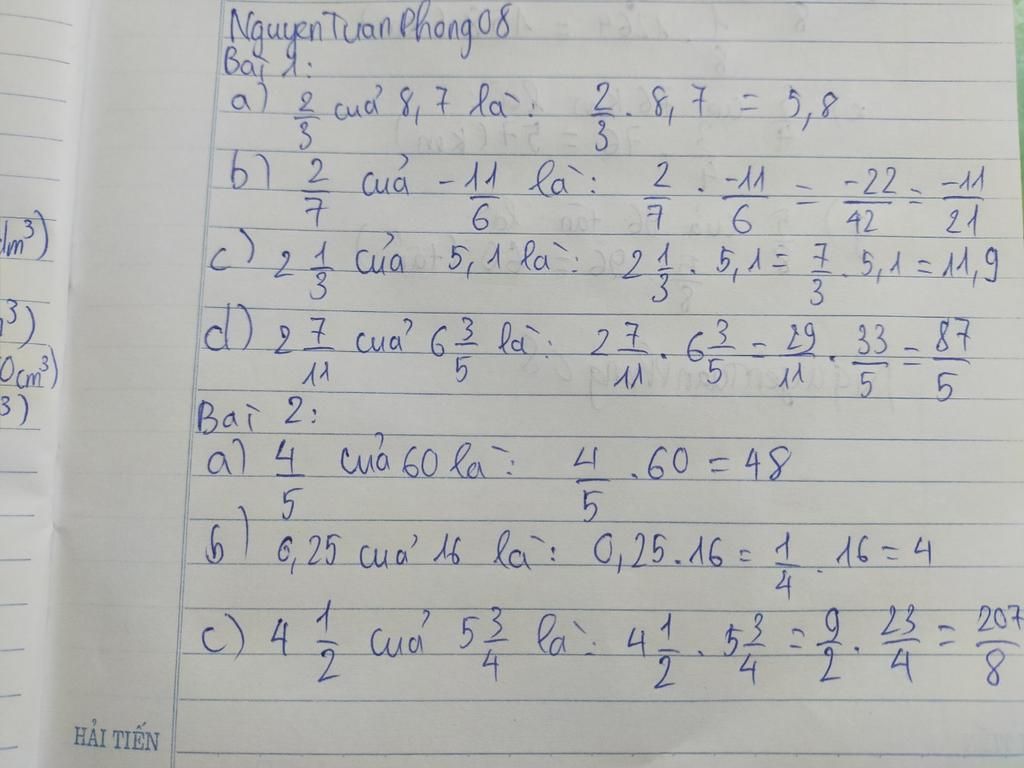 NguyenTuanPhong08
Bài 1:
a) 2/3 cuả 8,7 là: 2/3 . 8,7 = 5,8
b) 2/7 cuả -11/6 là: 2/7 . -11/6 = -22/42 = -11/21
c) 2 1/3 cuả 5,1 là: 2 1/3 . 5,1 = 7/3 . 5,1 = 11,9
d) 2 7/11 cuả 6 3/5 là: 2 7/11 . 6 3/5 = 29/11 . 33/5 = 87/5
Bài 2:
a) 4/5 cuả 60 là: 4/5 . 60 = 48
b) 0,25 cuả 16 là: 0,25 . 16 = 1/4 . 16 = 4
c) 4 1/2 cuả 5 3/4 là: 4 1/2 . 5 3/4 = 9/2 . 23/4 = 207/8
dm³)
³)
0cm³)
³)
HẢI TIẾN